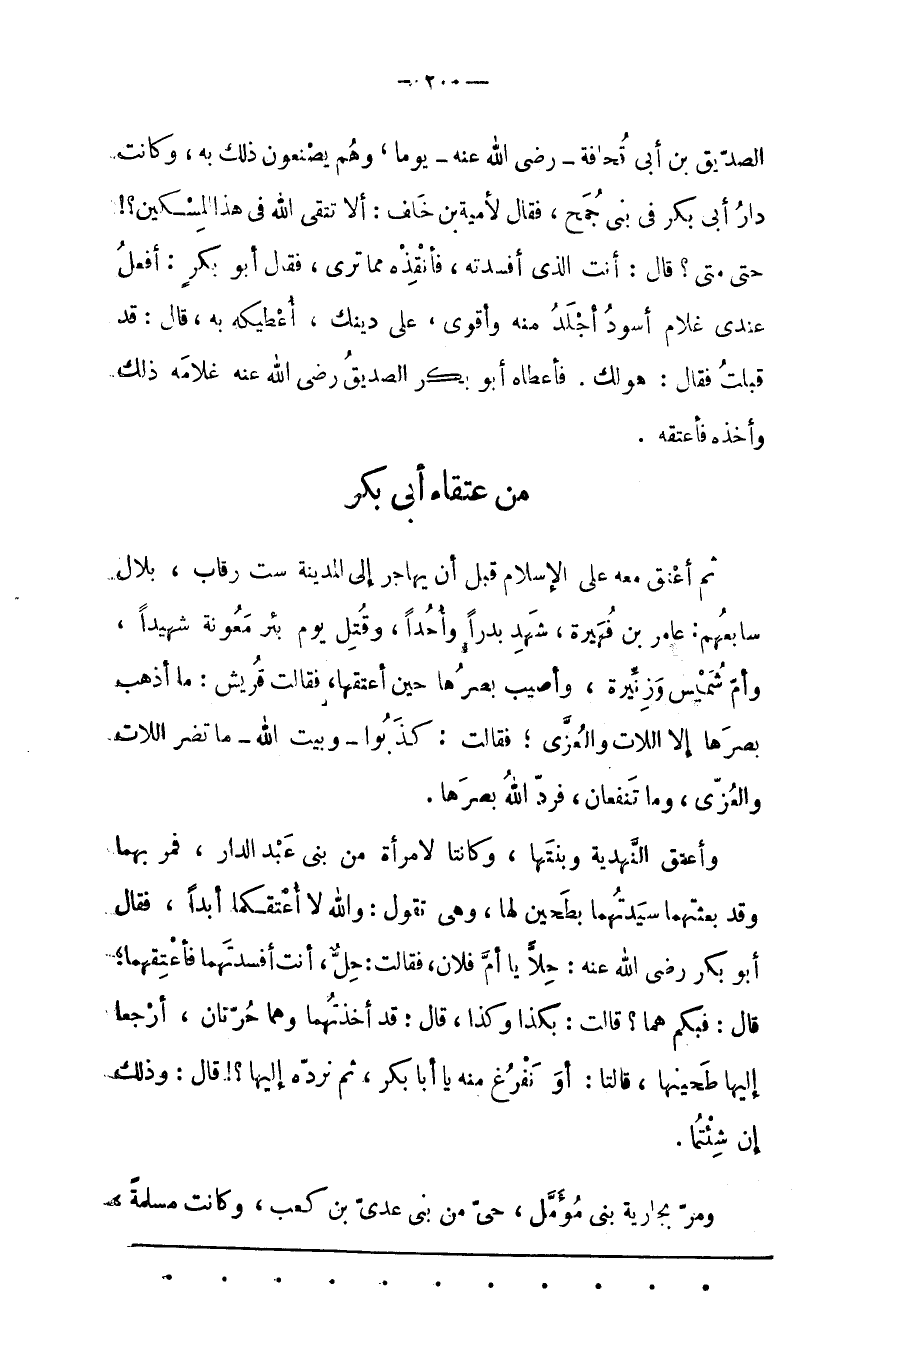 — ٢٠٠ —
الصدّيق بن أبى قُحافة - رضى الله عنه - يوما ، وهُم يصْنعون ذلك به ، وكانت
دارُ أبى بكر فى بنى جُمَح ، فقال لأمية بن خَلف : ألا تتقى الله فى هذا المِسْكين؟!
حتى متى ؟ قال : أنت الذى أفسدته ، فأنْقِذْه مما ترى ، فقال أبو بكرٍ : أفعلُ
عندى غلام أسودُ أجْلَدُ منه وأقوى ، على دينك ، أُعْطيكه به ، قال : قد
قبلتُ فقال : هو لك . فأعطاه أبو بكر الصديقُ رضى الله عنه غلامَه ذلك
وأخذه فأعتقه .
من عتقاء أبى بكر
ثم أعْتق معه على الإسلام قبل أن يهاجر إلى المدينة ست رقاب ، بلال
سابعُهم : عامر بن فُهَيرة ، شَهِد بدراً وأُحُداً ، وقُتِل يوم بئر مَعُونة شهيداً ،
وأمّ شُمَيْس وَزِنِّيرة ، وأصيب بصرُها حين أعتقها ، فقالت قُريش : ما أذهب
بصرَها إلا اللات والعُزَّى ؛ فقالت : كذَبُوا - وبيت الله - ما تضر اللات
والعُزّى ، وما تَنفعان ، فردّ اللهُ بصرَها .
وأعتق النَّهدية وبنتَها ، وكانتا لامرأة من بنى عَبْد الدار ، فمر بهما
وقد بعثتْهما سيّدتُهما بطَحين لها ، وهى تقول : والله لا أُعْتقكما أبداً ، فقال
أبو بكر رضى الله عنه : حِلاًّ يا أمَّ فلان، فقالت : حِلٌّ ، أنت أفسدتَهما فأعْتِقهما؛
قال : فبكم هما ؟ قالت : بكذا وكذا ، قال : قد أخذتُهما وهما حُرّتان ، أرْجعا
إليها طَحينها ، قالتا : أوَ نَفْرُغ منه يا أبا بكر ، ثم نردّه إليها ؟! قال : وذلك
إن شِئْتُما .
ومرّ بجارية بنى مُؤَمَّل ، حىّ من بنى عدىّ بن كعب ، وكانت مسلمةً ،